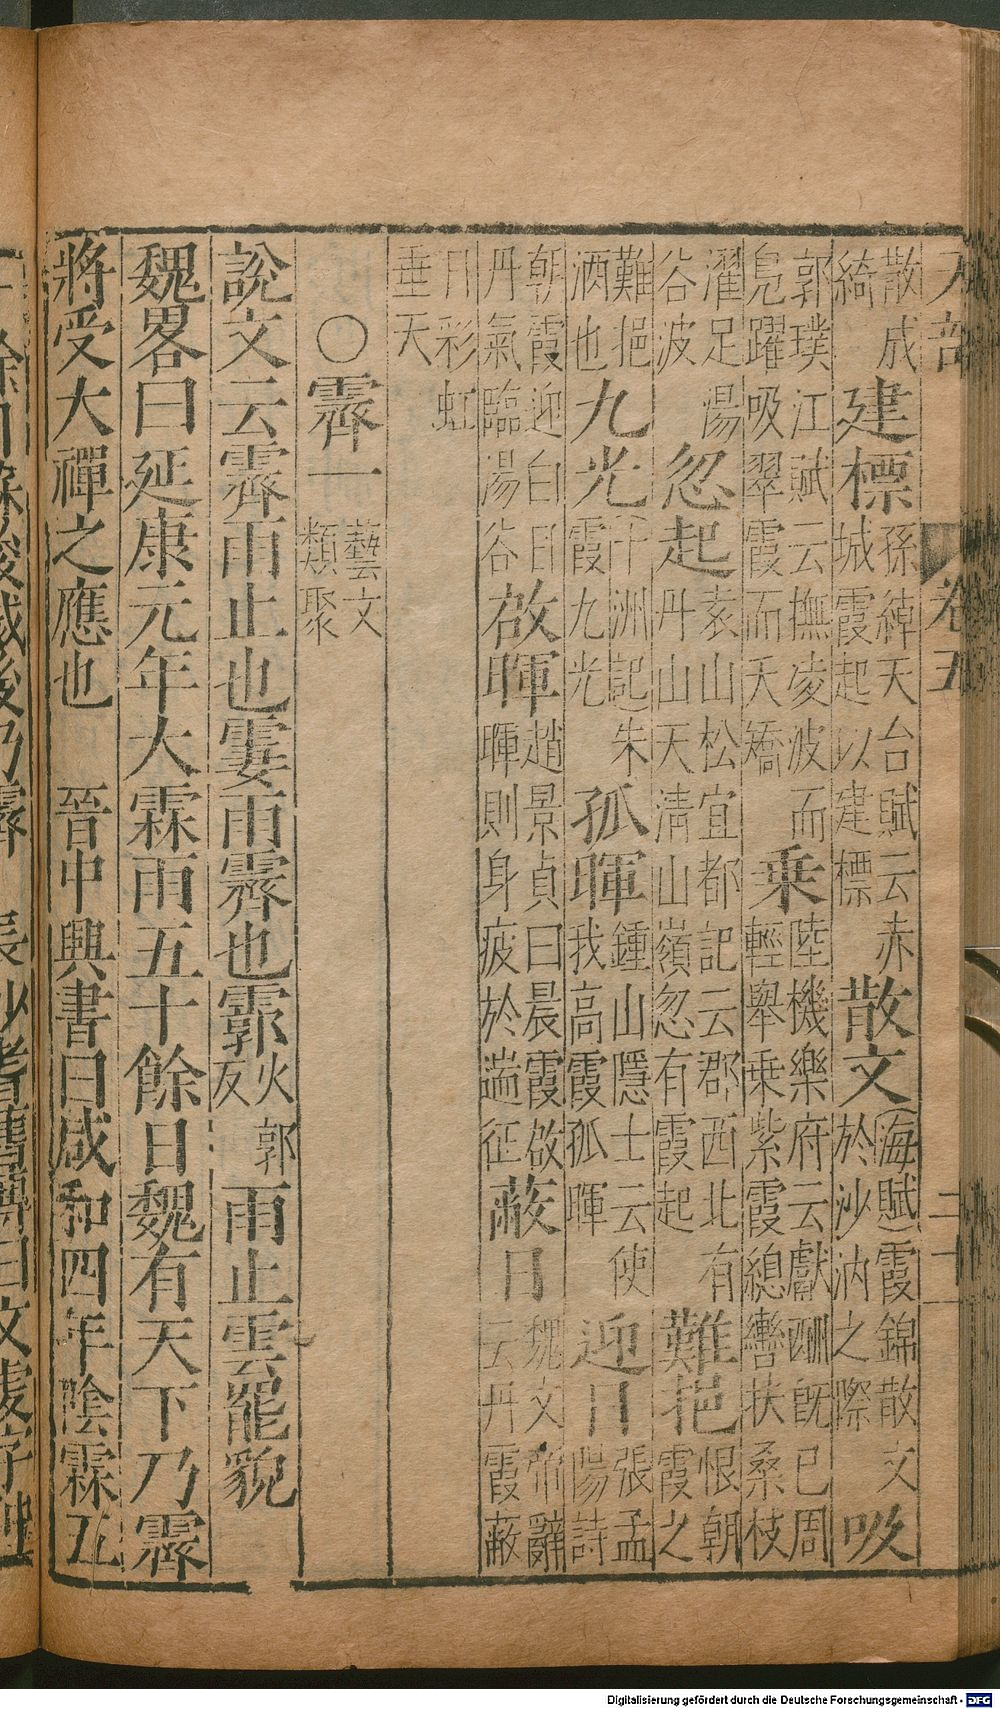 天部 卷五 二十一
散成綺 建標 孫綽天台賦云赤城霞起以建標 散文 (海賦)霞錦散文於沙汭之際 吸
郭璞江賦云撫凌波而鳧躍吸翠霞而夭矯 乗 陸機樂府云獻酬既已周輕舉乗紫霞緫轡扶桑枝
濯足湯谷波 忽起 袁山松宜都記云郡西北有丹山天清山嶺忽有霞起 難挹 恨朝霞之
難挹酒也 九光 十洲記朱霞九光 孤暉 鍾山隱士云使我高霞孤暉 迎日 張孟陽詩
朝霞迎白日丹氣臨湯谷 啟暉 趙景貞曰晨霞啟暉則身疲於遄征 蔽日 魏文帝辭云丹霞蔽
日彩虹垂天
○霽一 藝文類聚
說文云霽雨止也霋雨霽也霩火郭反雨止雲罷貌
魏畧曰延康元年大霖雨五十餘日魏有天下乃霽
將受大禪之應也 晉中興書曰咸和四年陰霖五